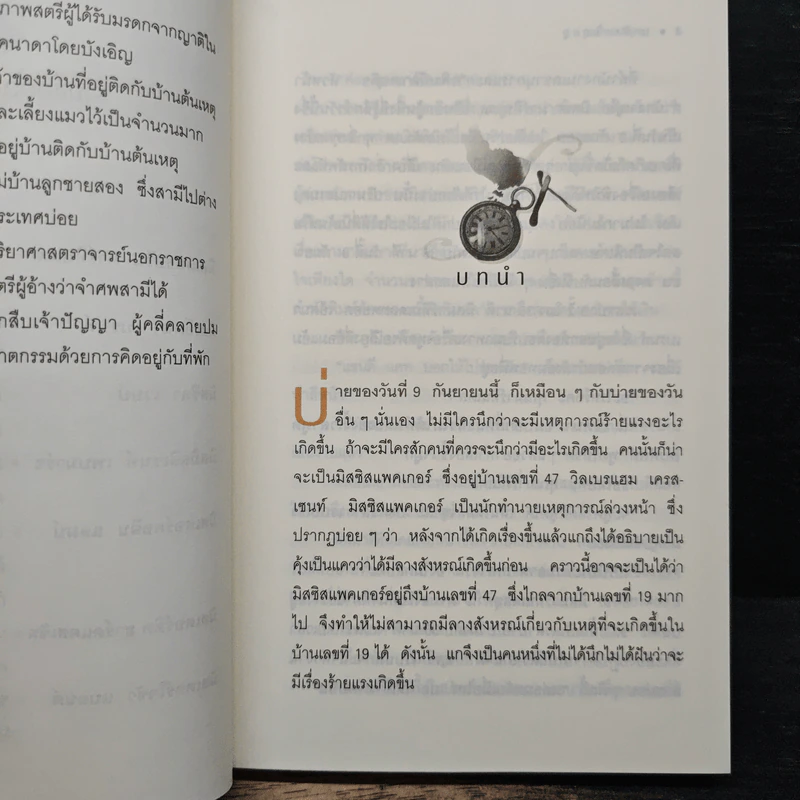 ภาพสตรีผู้ได้รับมรดกจากญาติใน
คนาดาโดยบังเอิญ
จ้าของบ้านที่อยู่ติดกับบ้านต้นเหตุ
ละเลี้ยงแมวไว้เป็นจำนวนมาก
อยู่บ้านติดกับบ้านต้นเหตุ
ม่บ้านลูกชายสอง ซึ่งสามีไปต่าง
ระเทศบ่อย
ริยาศาสตราจารย์นอกราชการ
ตรีผู้อ้างว่าจำศพสามีได้
กสืบเจ้าปัญญา ผู้คลี่คลายปม
าตกรรมด้วยการคิดอยู่กับที่พัก
บทนำ
บ่ายของวันที่ 9 กันยายนนี้ ก็เหมือน ๆ กับบ่ายของวัน
อื่น ๆ นั่นเอง ไม่มีใครนึกว่าจะมีเหตุการณ์ร้ายแรงอะไร
เกิดขึ้น ถ้าจะมีใครสักคนที่ควรจะนึกว่ามีอะไรเกิดขึ้น คนนั้นก็น่า
จะเป็นมิสซิสแพคเกอร์ ซึ่งอยู่บ้านเลขที่ 47 วิลเบรแฮม เครส-
เซนท์ มิสซิสแพคเกอร์ เป็นนักทำนายเหตุการณ์ล่วงหน้า ซึ่ง
ปรากฏบ่อย ๆ ว่า หลังจากได้เกิดเรื่องขึ้นแล้วแกถึงได้อธิบายเป็น
คุ้งเป็นแควว่าได้มีลางสังหรณ์เกิดขึ้นก่อน คราวนี้อาจจะเป็นได้ว่า
มิสซิสแพคเกอร์อยู่ถึงบ้านเลขที่ 47 ซึ่งไกลจากบ้านเลขที่ 19 มาก
ไป จึงทำให้ไม่สามารถมีลางสังหรณ์เกี่ยวกับเหตุที่จะเกิดขึ้นใน
บ้านเลขที่ 19 ได้ ดังนั้น แกจึงเป็นคนหนึ่งที่ไม่ได้นึกไม่ได้ฝันว่าจะ
มีเรื่องร้ายแรงเกิดขึ้น